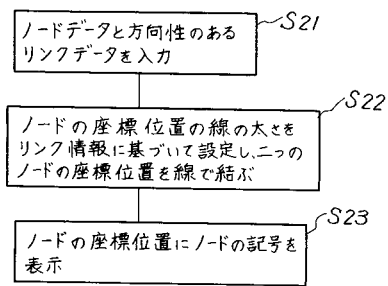 S21
ノードデータと方向性のある
リンクデータを入力
S22
ノードの座標位置の線の太さを
リンク情報に基づいて設定し、二つの
ノードの座標位置を線で結ぶ
S23
ノードの座標位置にノードの記号を
表示